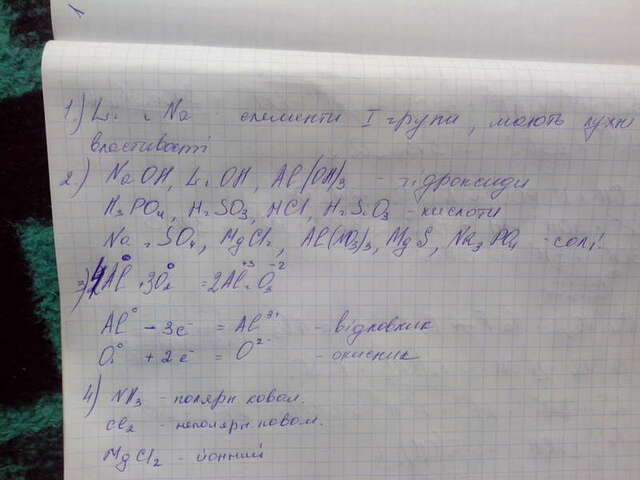 1
1.) Li і Na - елементи I групи, мають лужні
властивості
2.) NaOH, LiOH, Al(OH)3 - гідроксиди
H3PO4, H2SO3, HCl, H2SiO3 - кислоти
Na2SO4, MgCl2, Al(NO3)3, MgS, Na3PO4 - солі
3) 4Al⁰ + 3O2⁰ = 2Al2⁺³O3⁻²
Al⁰ - 3e⁻ = Al³⁺ - відновник
O2⁰ + 2e⁻ = O²⁻ - окисник
4) NH3 - полярн ковал.
Cl2 - неполярн ковал.
MgCl2 - йонний